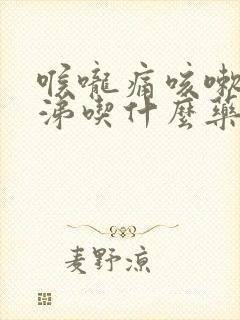 喉嚨痛咳嗽
涕喫什麼藥
麦野凉